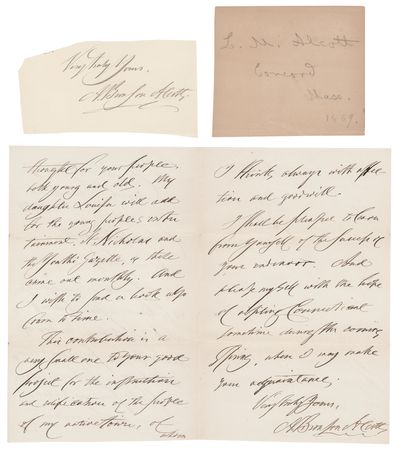 Very truly Yours,
A. Bronson Alcott,
L. M. Alcott
Concord
Mass.
1869.
thought for your people,
both young and old. My
daughter Louisa will add
for the young people's enter
tainment, St Nicholas and
the Youth's Gazette, as these
come out monthly. And
I wish to find a book also
from time.
This contribution is a
very small one to your good
project for the instruction
and edification of the people
of my native town, of
whom
I think, always with affec
tion and goodwill.
I shall be pleased to learn
from yourself of the success of
your endeavor. And
please myself with the hope
of visiting Connecticut
sometime during the coming
Spring, when I may make
your acquaintance.
Very truly Yours,
A. Bronson Alcott.